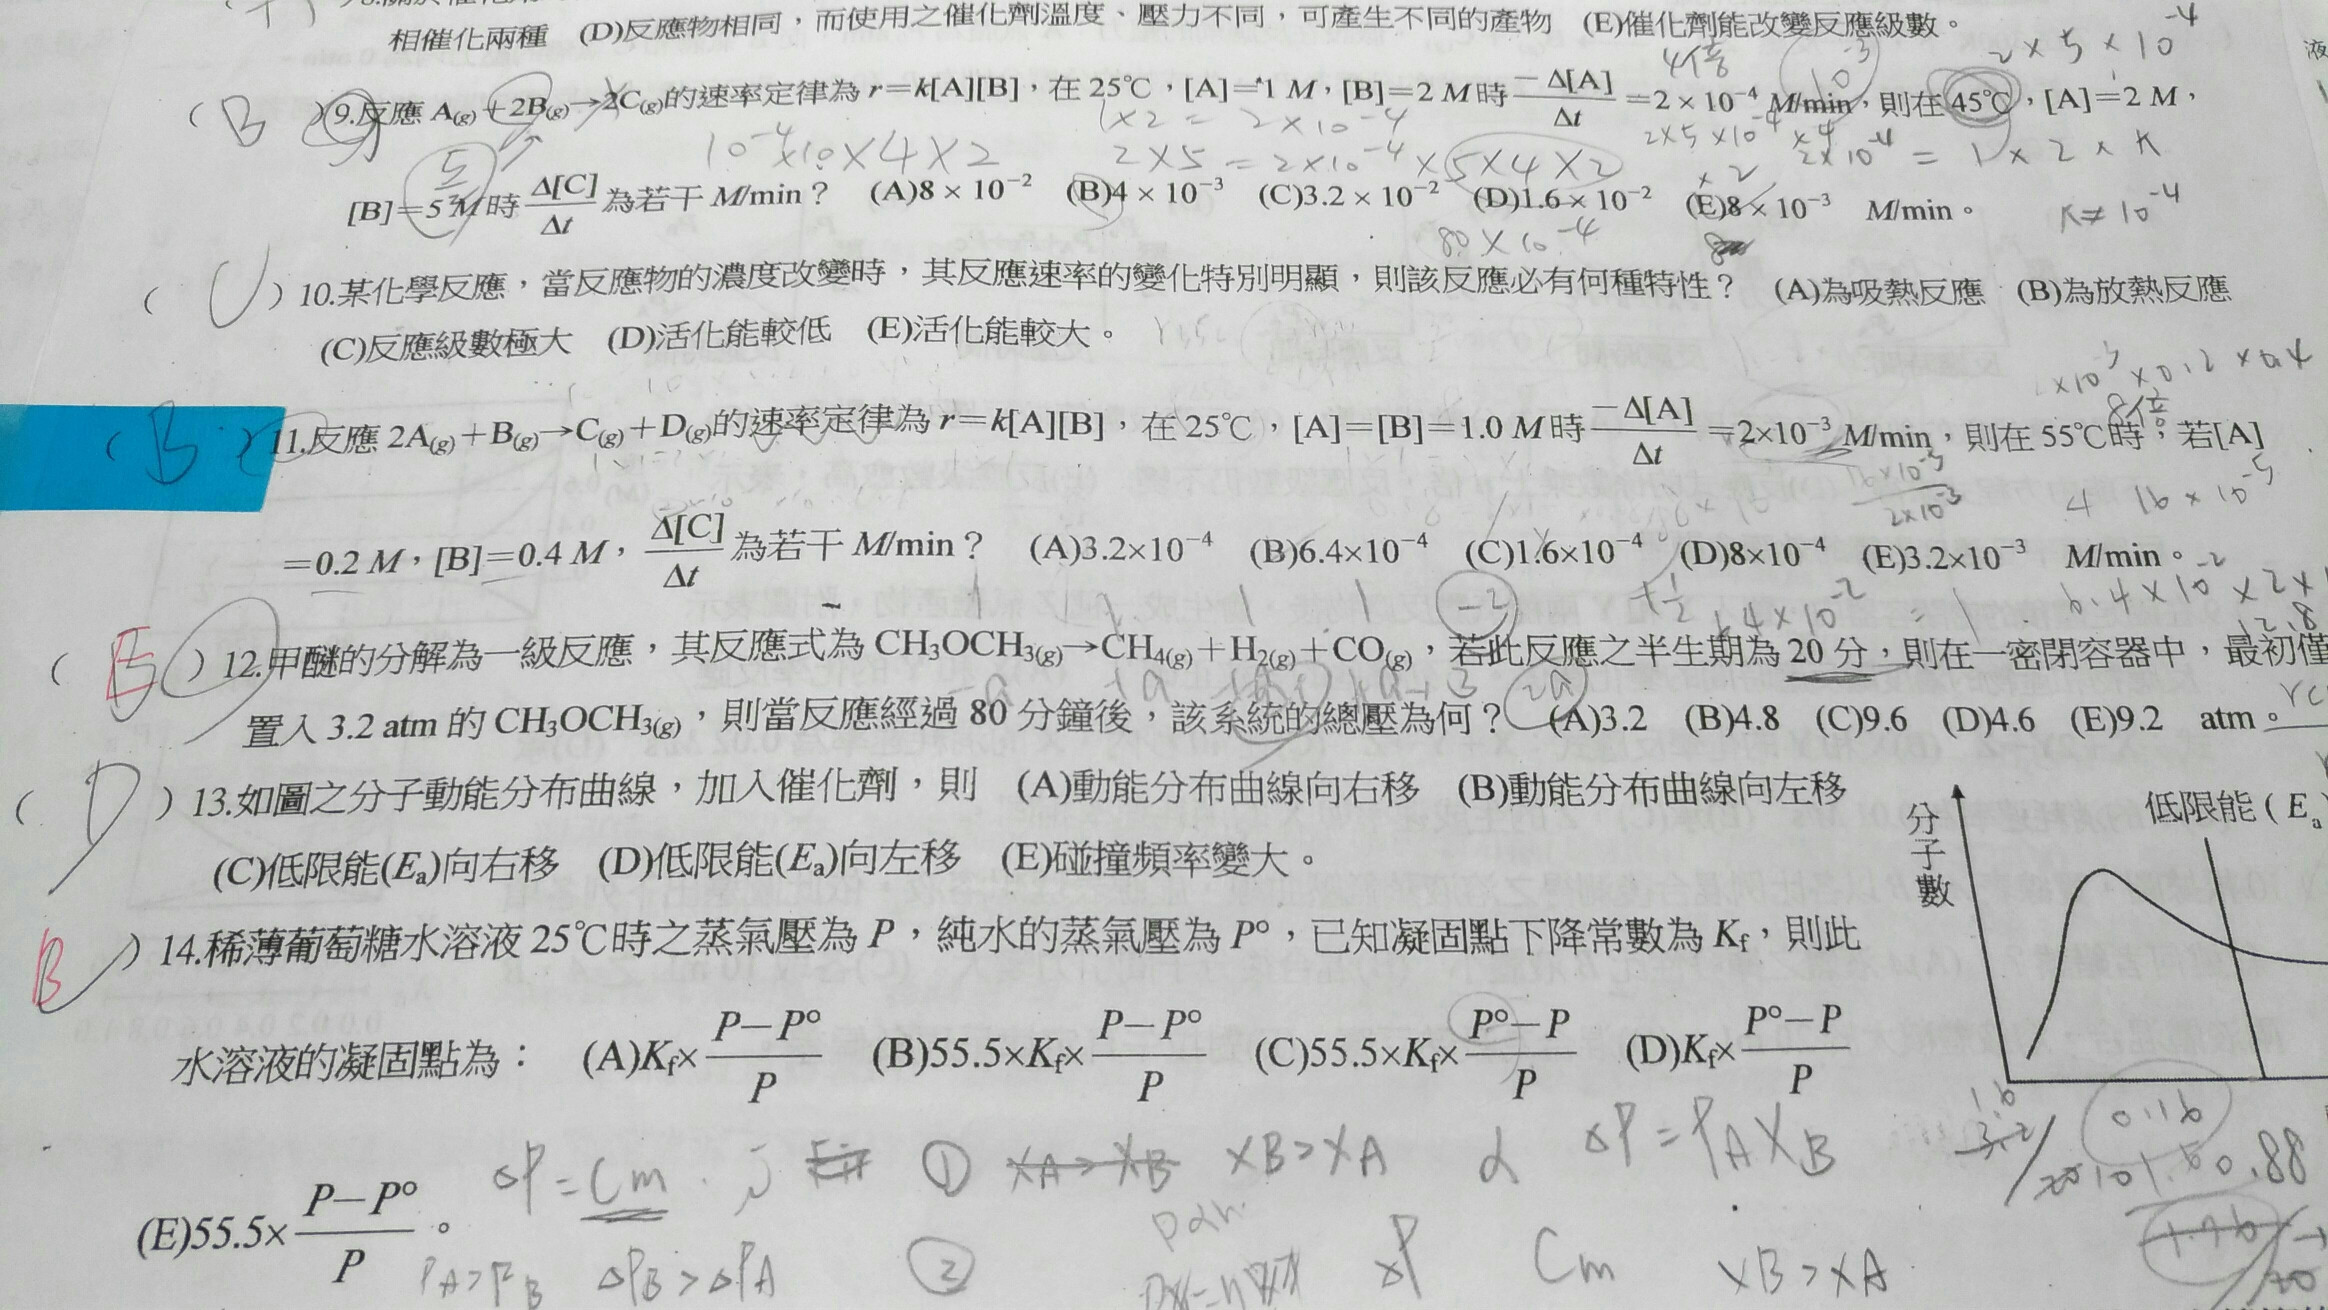 相催化兩種 (D)反應物相同，而使用之催化劑溫度、壓力不同，可產生不同的產物 (E)催化劑能改變反應級數。
2×5×10⁻⁴
4倍
10⁻³
(B)9.反應 A(g)+2B(g)→2C(g)的速率定律為 r=k[A][B]，在 25℃，[A]=1 M，[B]=2 M 時 −Δ[A]/Δt =2×10⁻⁴ M/min，則在 45℃，[A]=2 M，
1×2 = 2×10⁻⁴
10⁻⁴×10×4×2
2×5 = 2×10⁻⁴×5×4×2
2×5×10⁻⁴×4
×2
2×10⁻⁴ = 1×2×K
[B]=5 M 時 Δ[C]/Δt 為若干 M/min？ (A)8×10⁻² (B)4×10⁻³ (C)3.2×10⁻² (D)1.6×10⁻² (E)8×10⁻³ M/min。
80×10⁻⁴
K=10⁻⁴
( )10.某化學反應，當反應物的濃度改變時，其反應速率的變化特別明顯，則該反應必有何種特性？ (A)為吸熱反應 (B)為放熱反應
(C)反應級數極大 (D)活化能較低 (E)活化能較大。
×10⁻³×0.2×0.4
8倍
(B)11.反應 2A(g)+B(g)→C(g)+D(g)的速率定律為 r=k[A][B]，在 25℃，[A]=[B]=1.0 M 時 −Δ[A]/Δt =2×10⁻³ M/min，則在 55℃時，若[A]
16×10⁻³
2×10⁻³
4 16×10⁻⁵
=0.2 M，[B]=0.4 M， Δ[C]/Δt 為若干 M/min？ (A)3.2×10⁻⁴ (B)6.4×10⁻⁴ (C)1.6×10⁻⁴ (D)8×10⁻⁴ (E)3.2×10⁻³ M/min。
1 1 1 1 −2
6.4×10⁻²×2×
12.8
(E)12.甲醚的分解為一級反應，其反應式為 CH₃OCH₃(g)→CH₄(g)+H₂(g)+CO(g)，若此反應之半生期為 20 分，則在一密閉容器中，最初僅
−a +a +a +a
2a
置入 3.2 atm 的 CH₃OCH₃(g)，則當反應經過 80 分鐘後，該系統的總壓為何？ (A)3.2 (B)4.8 (C)9.6 (D)4.6 (E)9.2 atm。
(D)13.如圖之分子動能分布曲線，加入催化劑，則 (A)動能分布曲線向右移 (B)動能分布曲線向左移
(C)低限能(Eₐ)向右移 (D)低限能(Eₐ)向左移 (E)碰撞頻率變大。
分子數
低限能(Eₐ)
B )14.稀薄葡萄糖水溶液 25℃時之蒸氣壓為 P，純水的蒸氣壓為 P°，已知凝固點下降常數為 Kf，則此
水溶液的凝固點為： (A)Kf×(P−P°)/P (B)55.5×Kf×(P−P°)/P (C)55.5×Kf×(P°−P)/P (D)Kf×(P°−P)/P
1.6
3.2
0.16
0.88
(E)55.5×(P−P°)/P。
ΔP=Cm · i ① XA>XB XB>XA α ΔP=PAXB
PA>PB ΔPB>ΔPA ② ΔP Cm XB>XA